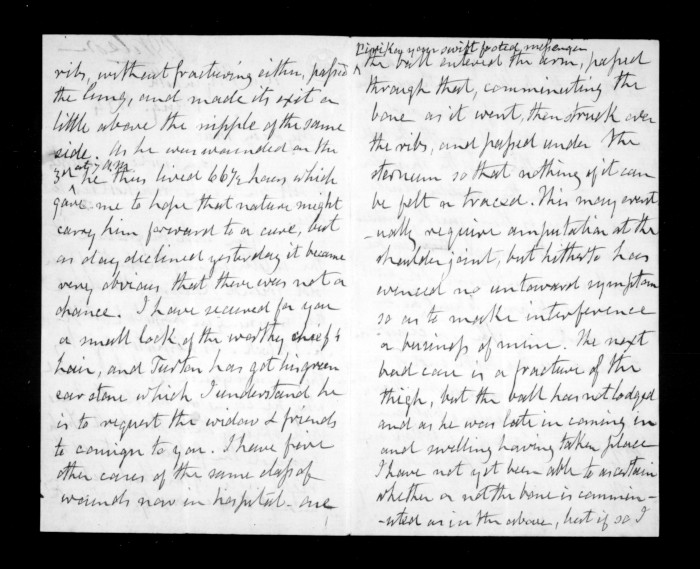 ribs, without fracturing either, passed
the lung, and made its exit a
little above the nipple of the same
side. As he was wounded on the
3rd at 7 A.M. he thus lived 66½ hours which
gave me to hope that nature might
carry him forward to a cure, but
as day declined yesterday it became
very obvious that there was not a
chance. I have secured for you
a small lock of the worthy chief's
hair, and Turton has got his green
ear stone which I understand he
is to request the widow & friends
to consign to you. I have five
other cases of the same class of
wounds now in hospital - one
your swift footed messenger
the ball entered the arm, passed
through that, comminuting the
bone as it went, then struck over
the ribs, and passed under the
sternum so that nothing of it can
be felt or traced. This may event
-ually require amputation at the
shoulder joint, but hitherto has
evinced no untoward symptom
so as to make interference
a business of mine. The next
bad case is a fracture of the
thigh, but the ball has not lodged
and as he was late in coming in
and swelling having taken place
I have not yet been able to ascertain
whether or not the bone is commin-
-uted as in the above, but if so I